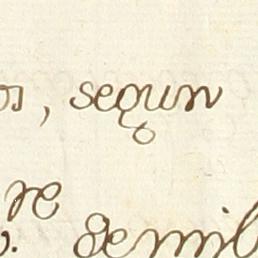 os, segun
re
. de mil